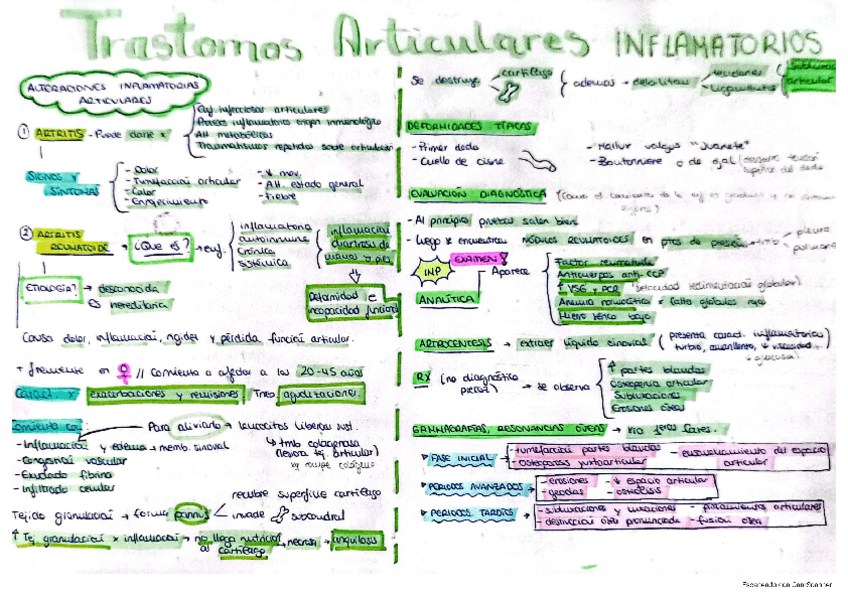 Trastornos Articulares INFLAMATORIOS
ALTERACIONES INFLAMATORIAS
ARTICULARES
① ARTRITIS - Puede darse x
Enf. infecciosas articulares
Proceso inflamatorio origen inmunológico
Alt metabólicas
Traumatismos repetidos sobre articulación
SIGNOS Y
SINTOMAS
- Dolor
- Tumefacción articular
- Calor
- Enrojecimiento
- ↓ mov.
- Alt. estado general
- Fiebre
② ARTRITIS
REUMATOIDE → ¿Qué es? → enf.
inflamatoria
autoinmune
Crónica
sistémica
inflamación
diartrosis de
manos y pies
Deformidad e
incapacidad funcional
ETIOLOGIA? → desconocida
hereditaria
Causa dolor, inflamación, rigidez y pérdida función articular.
+ frecuente en ♀ // Comienza a afectar a los 20-45 años
Caract. x exacerbaciones y remisiones Tmb. agudizaciones.
Comienza co:
- Inflamación y edema → memb. sinovial
- Congestión vascular
- Exudado fibrina
- Infiltrado celular
Para aliviarlo → leucocitos liberan sust.
↳ tmb colagenasa
(rompe colágeno)
Tejido granulación → forma pannus
recubre superficie cartílago
invade subcondral
↑ Tej. granulación x inflamación → no llega nutrición
al cartílago → necrosis → anquilosis
Se destruye → cartílago
además → debilitan → tendones
ligamentos
articular
DEFORMIDADES TÍPICAS
- Primer dedo
- Cuello de cisne
- Hallux valgus "Juanete"
- Boutonniere o de ojal
EVALUACIÓN DIAGNÓSTICA
- Al principio pruebas salen bien
- Luego se encuentran NÓDULOS REUMATOIDES en ptos de presión
IMP EXAMEN!
ANALÍTICA
Aparece
Factor reumatoide
Anticuerpos anti-CCP
↑ VSG y PCR (velocidad sedimentación globular)
Anemia normocítica x falta glóbulos rojos
Hierro sérico bajo
ARTROCENTESIS → extraer líquido sinovial (presenta caract. inflamatorias
turbio, amarillento, ↓ viscosidad...
RX (no diagnóstico
precoz) → se observa
↑ partes blandas
Osteopenia articular
Subluxaciones
Erosiones óseas
GAMMAGRAFÍAS, RESONANCIAS ÓSEAS → Para 1eras fases.
▸ FASE INICIAL → - tumefacción partes blandas - ensanchamiento del espacio
- osteoporosis yuxtaarticular articular
▸ PERIODOS AVANZADOS → - erosiones - ↓ espacio articular
- geodas - osteolisis
▸ PERIODOS TARDÍOS → - subluxaciones y luxaciones - pinzamientos articulares
- destrucción ósea pronunciada - fusión ósea
Escaneado con CamScanner